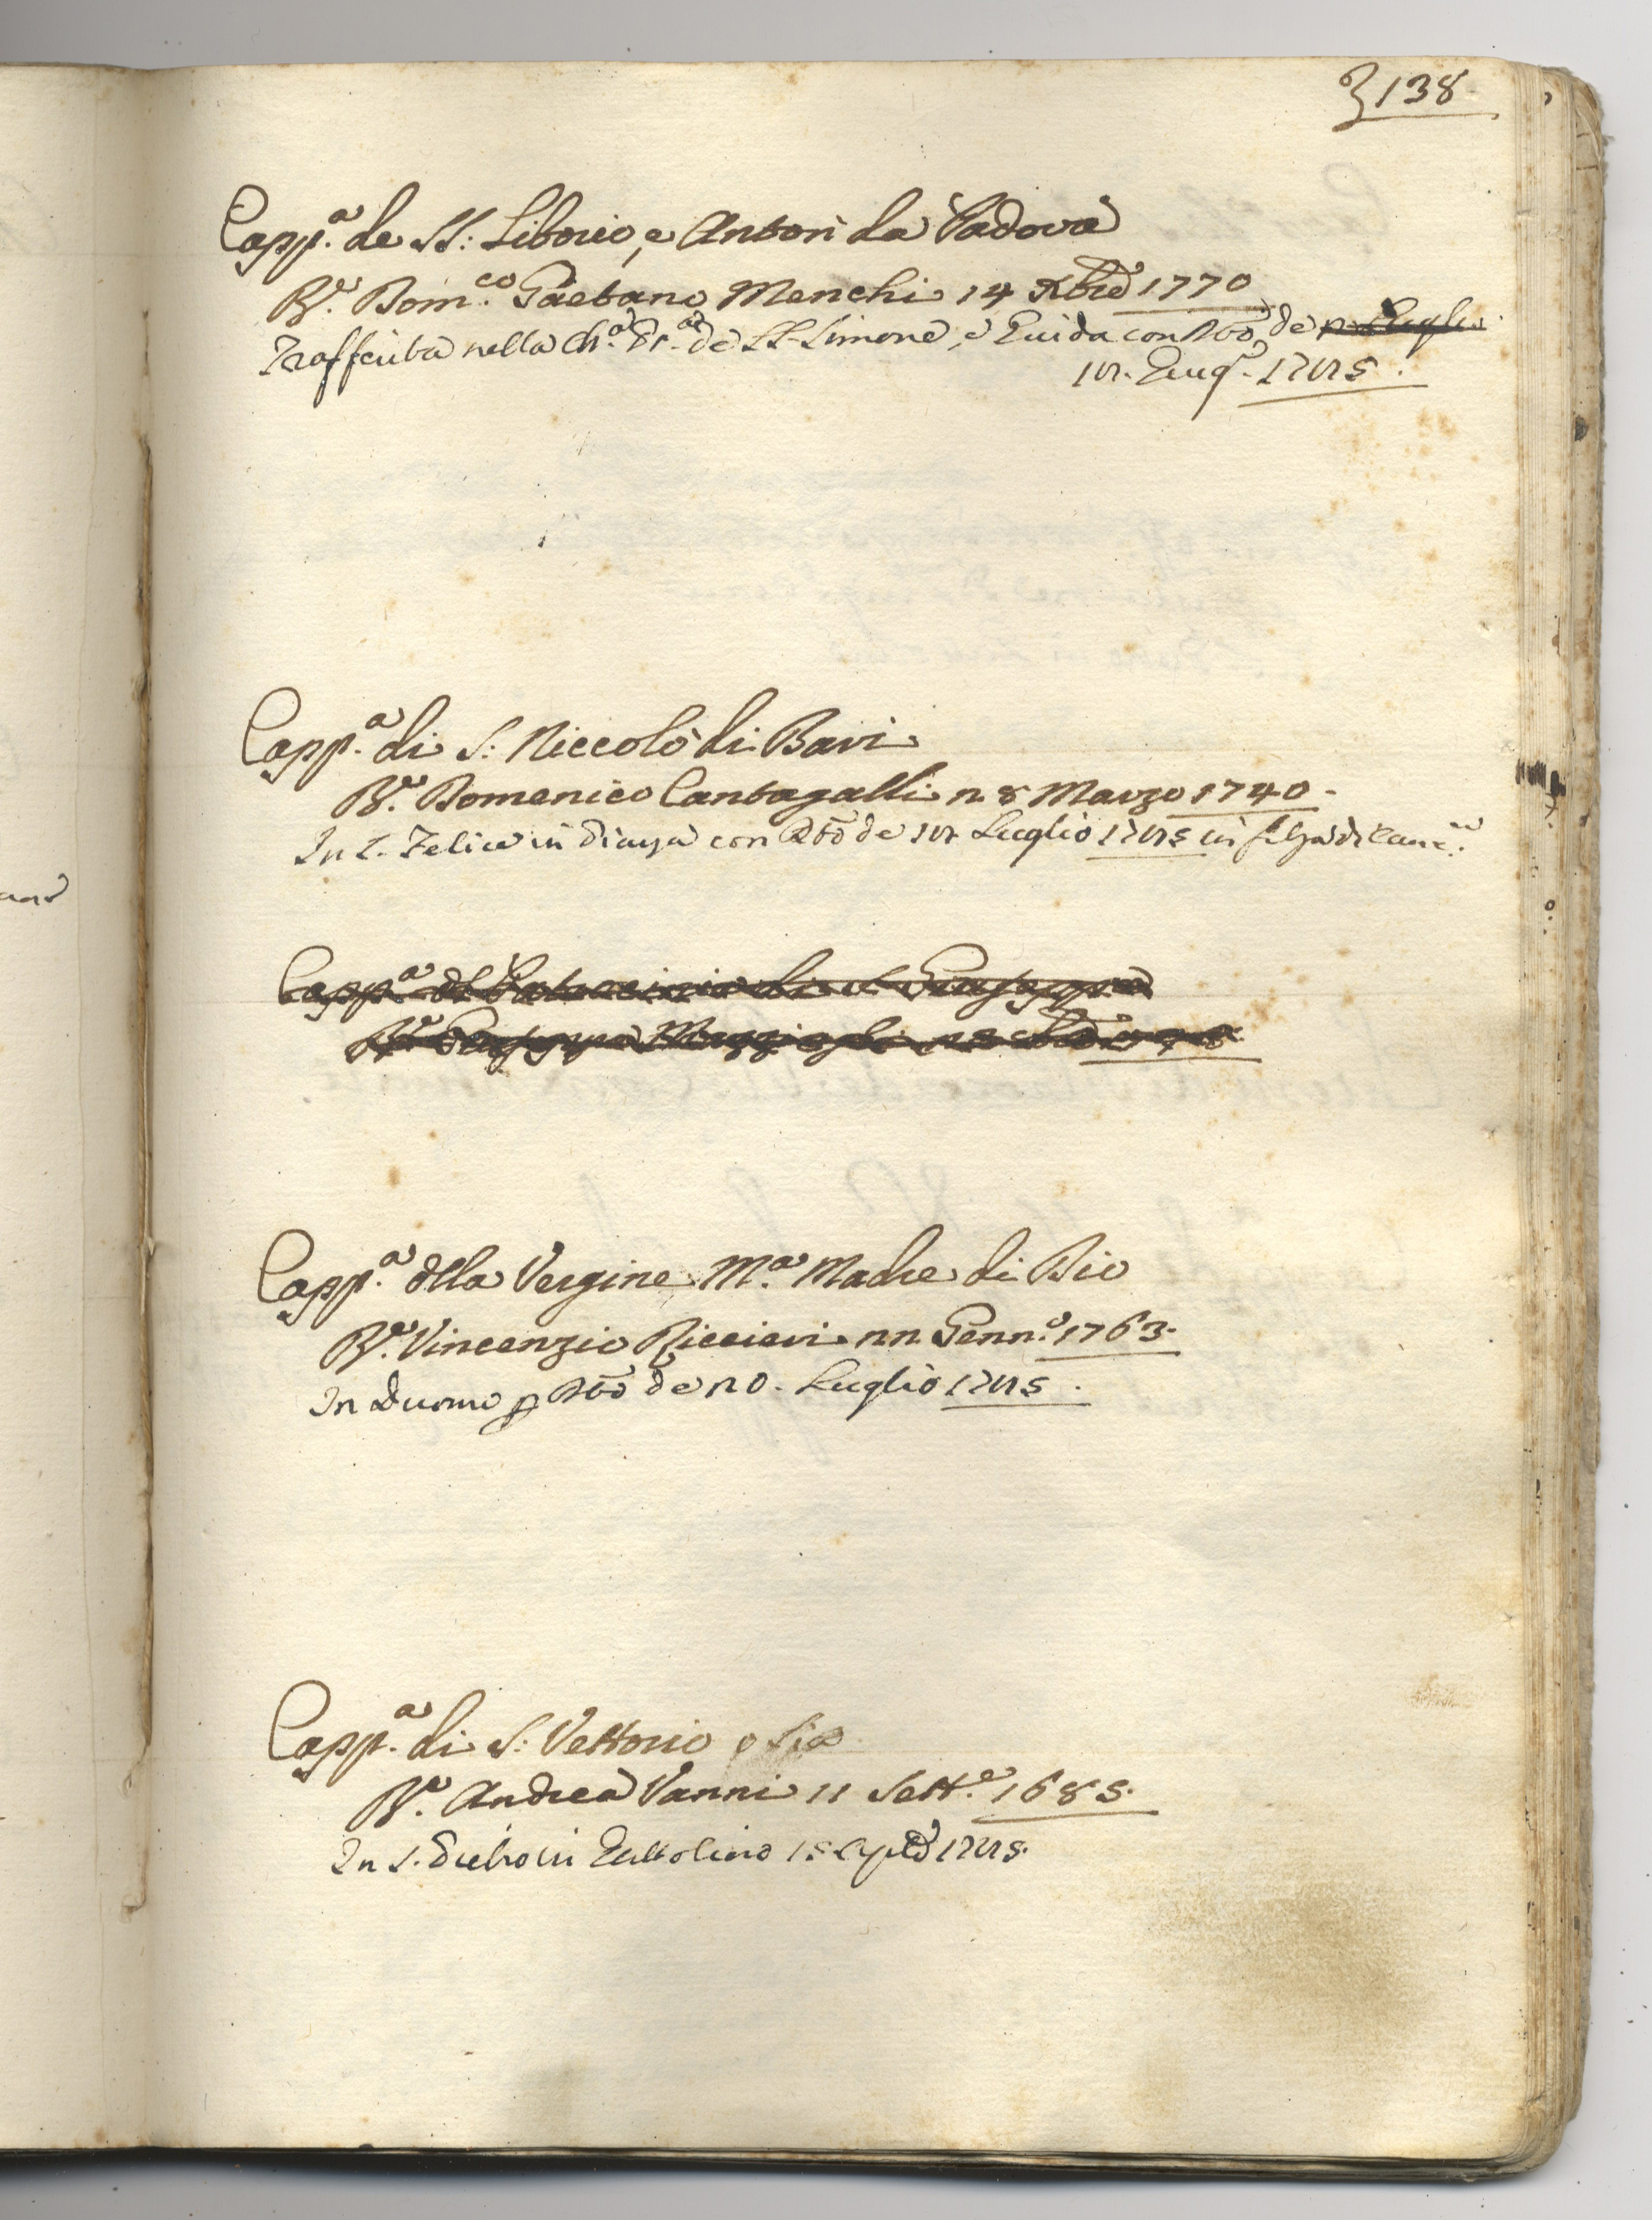 138
Capp.a de SS: Liborio, e Anton da Padova
Re. Dom.co Gaetano Menchi 14 Xbre 1770
Trasferita nella Ch.a Pr.a de SS. Simone, e Giuda con Dto de
Giug.o 1785.
Capp.a di S: Niccolò di Bari
Re. Domenico Cantagalli 28 Marzo 1740.
In S. Felice in Piazza con Dto de 18 Luglio 1785 in filza di Canc.a
Capp.a del Patrocinio di S. Giuseppe
Capp.a dlla Vergine M.a Madre di Dio
Re. Vincenzio Riccieri 22 Genn.o 1763.
In Duomo p Dto de 20. Luglio 1785.
Capp.a di S: Vettorio
Re. Andrea Vanni 11 Sett.e 1685.
In S. Pietro in Gattolino 15 Aple 1785.